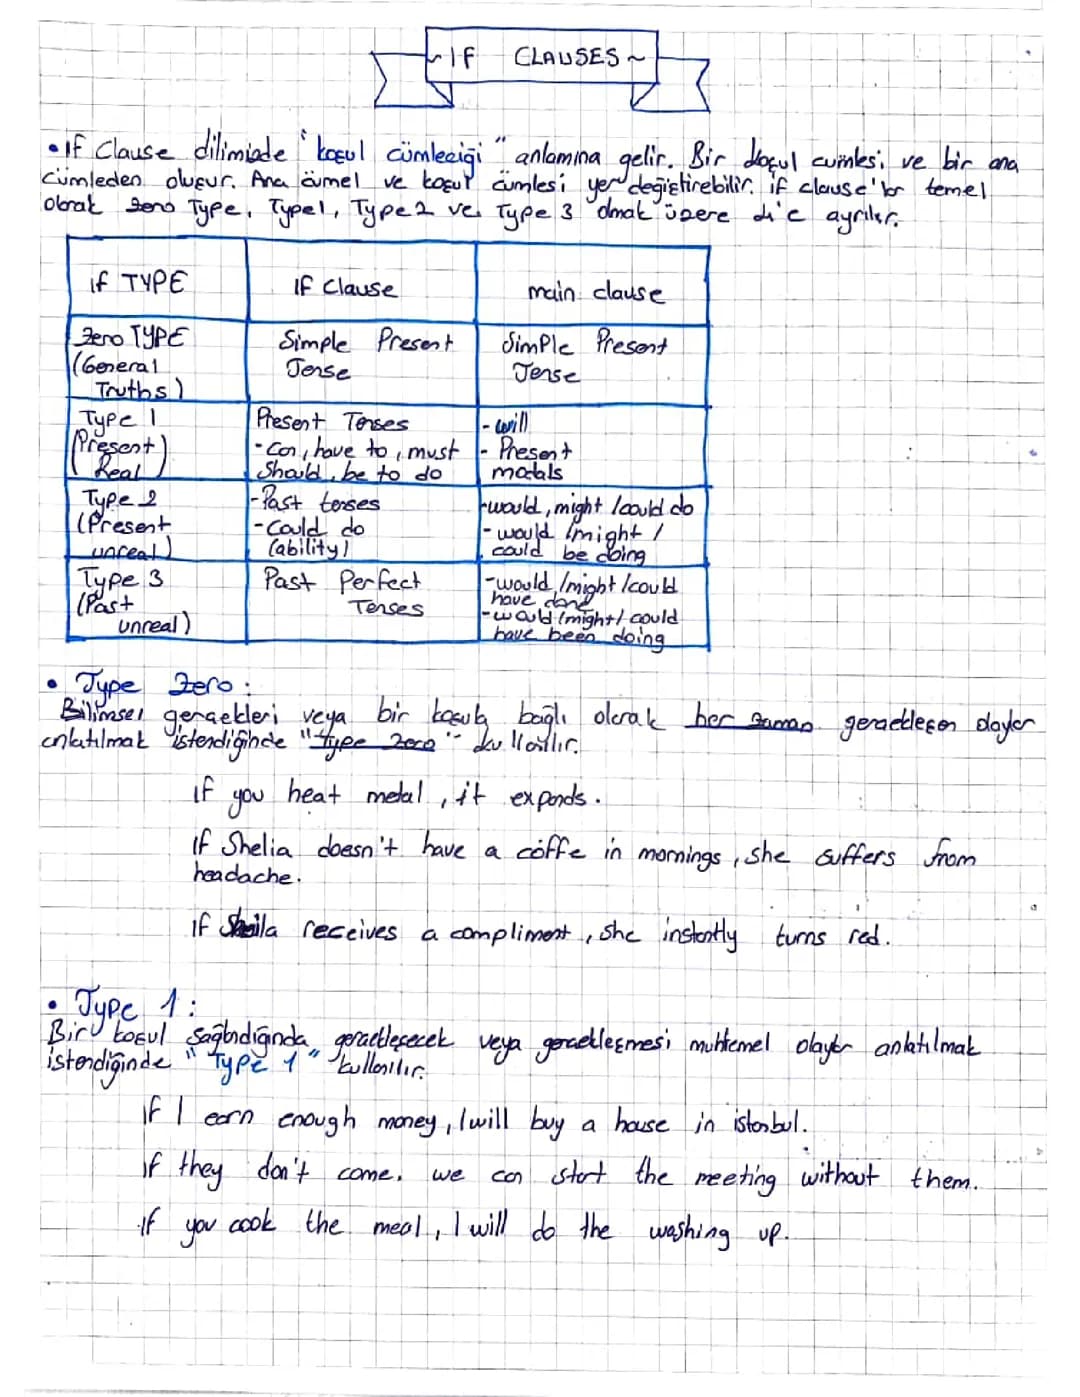 ~IF CLAUSES~
• If Clause dilimizde "koşul cümleciği" anlamına gelir. Bir koşul cümlesi ve bir ana
cümleden oluşur. Ana cümel ve koşul cümlesi yer değiştirebilir. if clause'lar temel
olarak zero Type, Type1, Type2 ve Type 3 olmak üzere 4'e ayrılır.
if TYPE If Clause main clause
Zero TYPE Simple Present Simple Present
(General Tense Tense
Truths)
Type 1 Present Tenses - will
(Present - can, have to, must - Present
Real) Should, be to do modals
Type 2 - Past tenses - would, might /could do
(Present - Could do - would /might /
unreal) (ability) could be doing
Type 3 Past Perfect - would /might /could
(Past Tenses have done
unreal) - would /might / could
have been doing
• Type Zero:
Bilimsel gerçekleri veya bir koşula bağlı olarak her zaman gerçekleşen olaylar
anlatılmak istendiğinde "type zero" kullanılır.
If you heat metal, it expands.
If Shelia doesn't have a coffe in mornings, she suffers from
headache.
If Sheila receives a compliment, she instantly turns red.
• Type 1:
Bir koşul sağlandığında gerçekleşecek veya gerçekleşmesi muhtemel olaylar anlatılmak
istendiğinde "Type 1" kullanılır.
If I earn enough money, I will buy a house in istanbul.
If they don't come, we can start the meeting without them.
If you cook the meal, I will do the washing up.